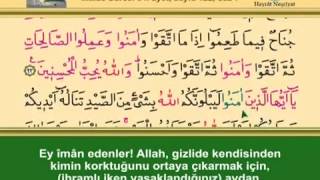 Hayrât Neşriyat
جُنَاحٌ فِيمَا طَعِمُٓوا اِذَا مَا اتَّقَوْا وَاٰمَنُوا وَعَمِلُوا الصَّالِحَاتِ
ثُمَّ اتَّقَوْا وَاٰمَنُوا ثُمَّ اتَّقَوْا وَاَحْسَنُوا وَاللّٰهُ يُحِبُّ الْمُحْسِنِينَ ﴿٩٣﴾
يَٓا اَيُّهَا الَّذِينَ اٰمَنُوا لَيَبْلُوَنَّكُمُ اللّٰهُ بِشَيْءٍ مِنَ الصَّيْدِ تَنَالُهُٓ اَيْدِيكُمْ
Ey îmân edenler! Allah, gizlide kendisinden
kimin korktuğunu ortaya çıkarmak için,
(ihramlı iken yasaklandığınız) avdan